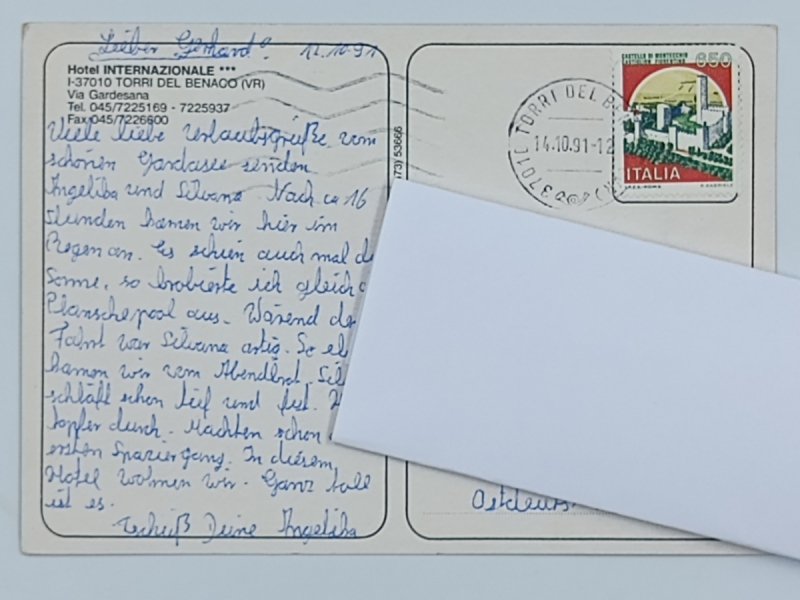 Lieber Gerhard! 12.10.91
Hotel INTERNAZIONALE ***
I-37010 TORRI DEL BENACO (VR)
Via Gardesana
Tel. 045/7225169 - 7225937
Fax 045/7226600
Viele liebe Urlaubsgrüße vom
schönen Gardasee senden
Angelika und Silvana. Nach ca 16
Stunden kamen wir hier im
Regen an. Es schien auch mal d
Sonne, so brobierte ich gleich
Planschepool aus. Wärend de
Fahrt war Silvana artig. So
kamen wir vom Abendbrot. Sil
schläft schon tief und fest.
topfer durch. Machten schon
ersten Spaziergang. In diesem
Hotel wohnen wir. Ganz toll
ist es.
Tschüß Deine Angelika
(73) 53666
37010 TORRI DEL B
14.10.91-12
CASTELLO DI MONTECCHIO
CASTIGLION FIORENTINO
850
ITALIA
I.P.Z.S.-ROMA
Ostdeuts